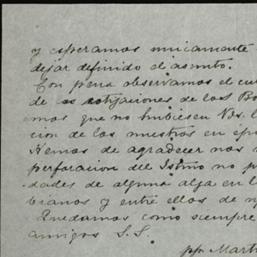 y esperamos unicamente
dejar definido el asunto.
Con pena observamos el cu
de las cotizaciones de los Bo
mos que no hubiesen Vds. l
cion de los nuestros en ép
Hemos de agradecer nos
perforacion del Istmo no p
dades de alguna alza en l
bianos y entre ellos de n
Quedamos como siempre
amigos S.S.
pp. Mart